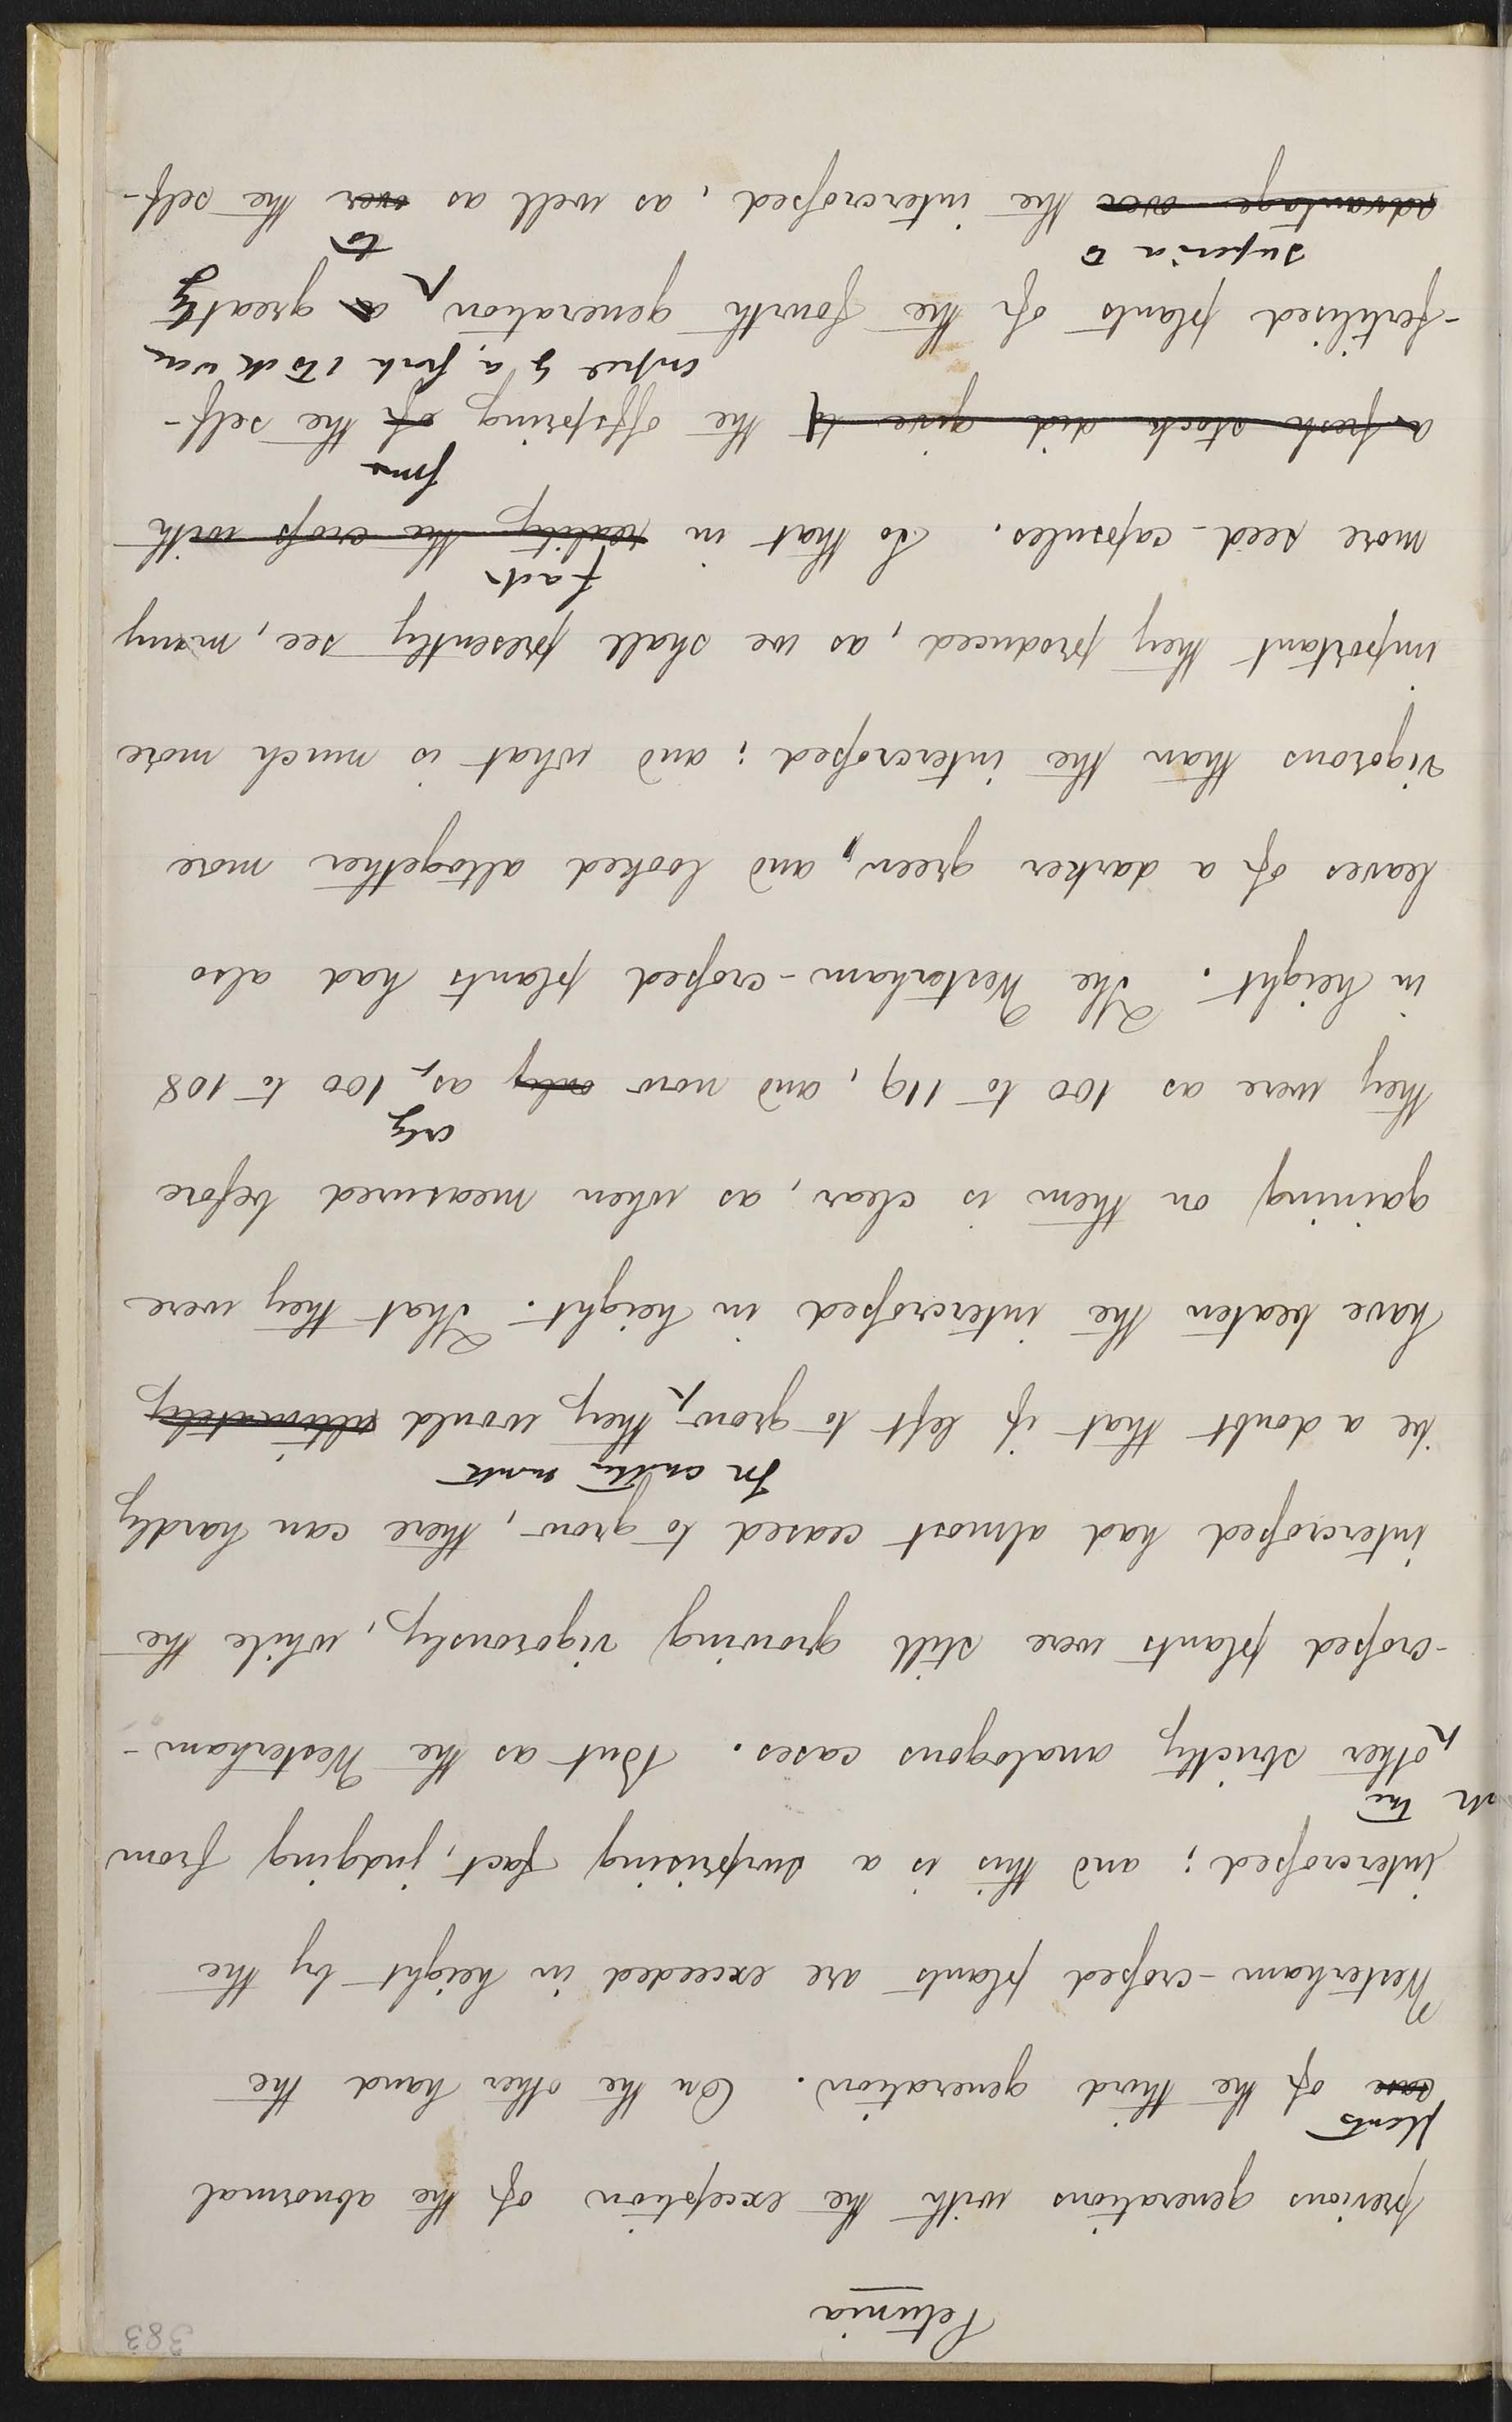 383
Petunia
previous generations with the exception of the abnormal
plants
case of the third generation. On the other hand the
Westerham-crossed plants are exceeded in height by the
intercrossed; and this is a surprising fact, judging from
the
other strictly analogous cases. But as the Westerham-
-crossed plants were still growing vigorously, while the
intercrossed had almost ceased to grow, there can hardly
for another month
be a doubt that if left to grow, they would ultimately
have beaten the intercrossed in height. That they were
gaining on them is clear, as when measured before
only
they were as 100 to 119, and now only as 100 to 108
in height. The Westerham-crossed plants had also
leaves of a darker green, and looked altogether more
vigorous than the intercrossed; and what is much more
important they produced, as we shall presently see, many
fact
more seed-capsules. So that in reality the cross with
from
a fresh stock did give to the offspring of the self-
crossed by a fresh stock were
-fertilised plants of the fourth generation a greatly
superior to
to
advantage over the intercrossed, as well as over the self-